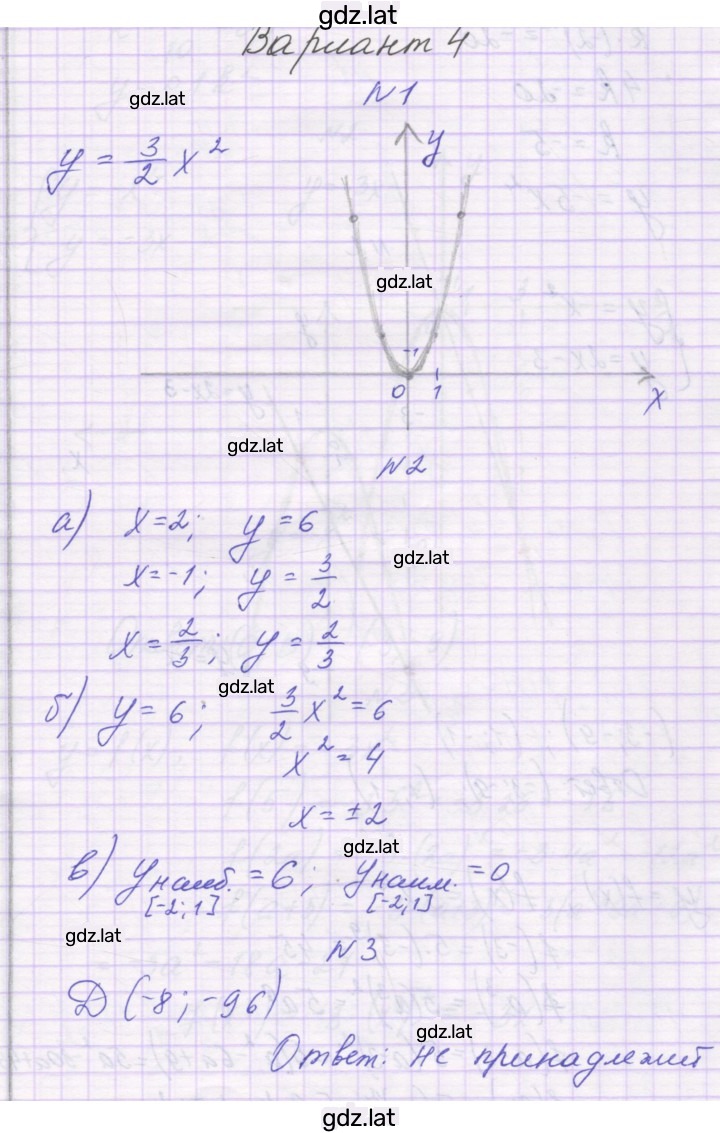 gdz.lat
Вариант 4
gdz.lat
N1
y = 3/2 x²
y
gdz.lat
1
0 1
x
gdz.lat
N2
а) x = 2; y = 6
gdz.lat
x = -1; y = 3/2
x = 2/3; y = 2/3
gdz.lat
б) y = 6; 3/2 x² = 6
x² = 4
x = ±2
gdz.lat
в) y наиб. [-2; 1] = 6; y наим. [-2; 1] = 0
gdz.lat
N3
D (-8; -96)
gdz.lat
Ответ: не принадлежит
gdz.lat